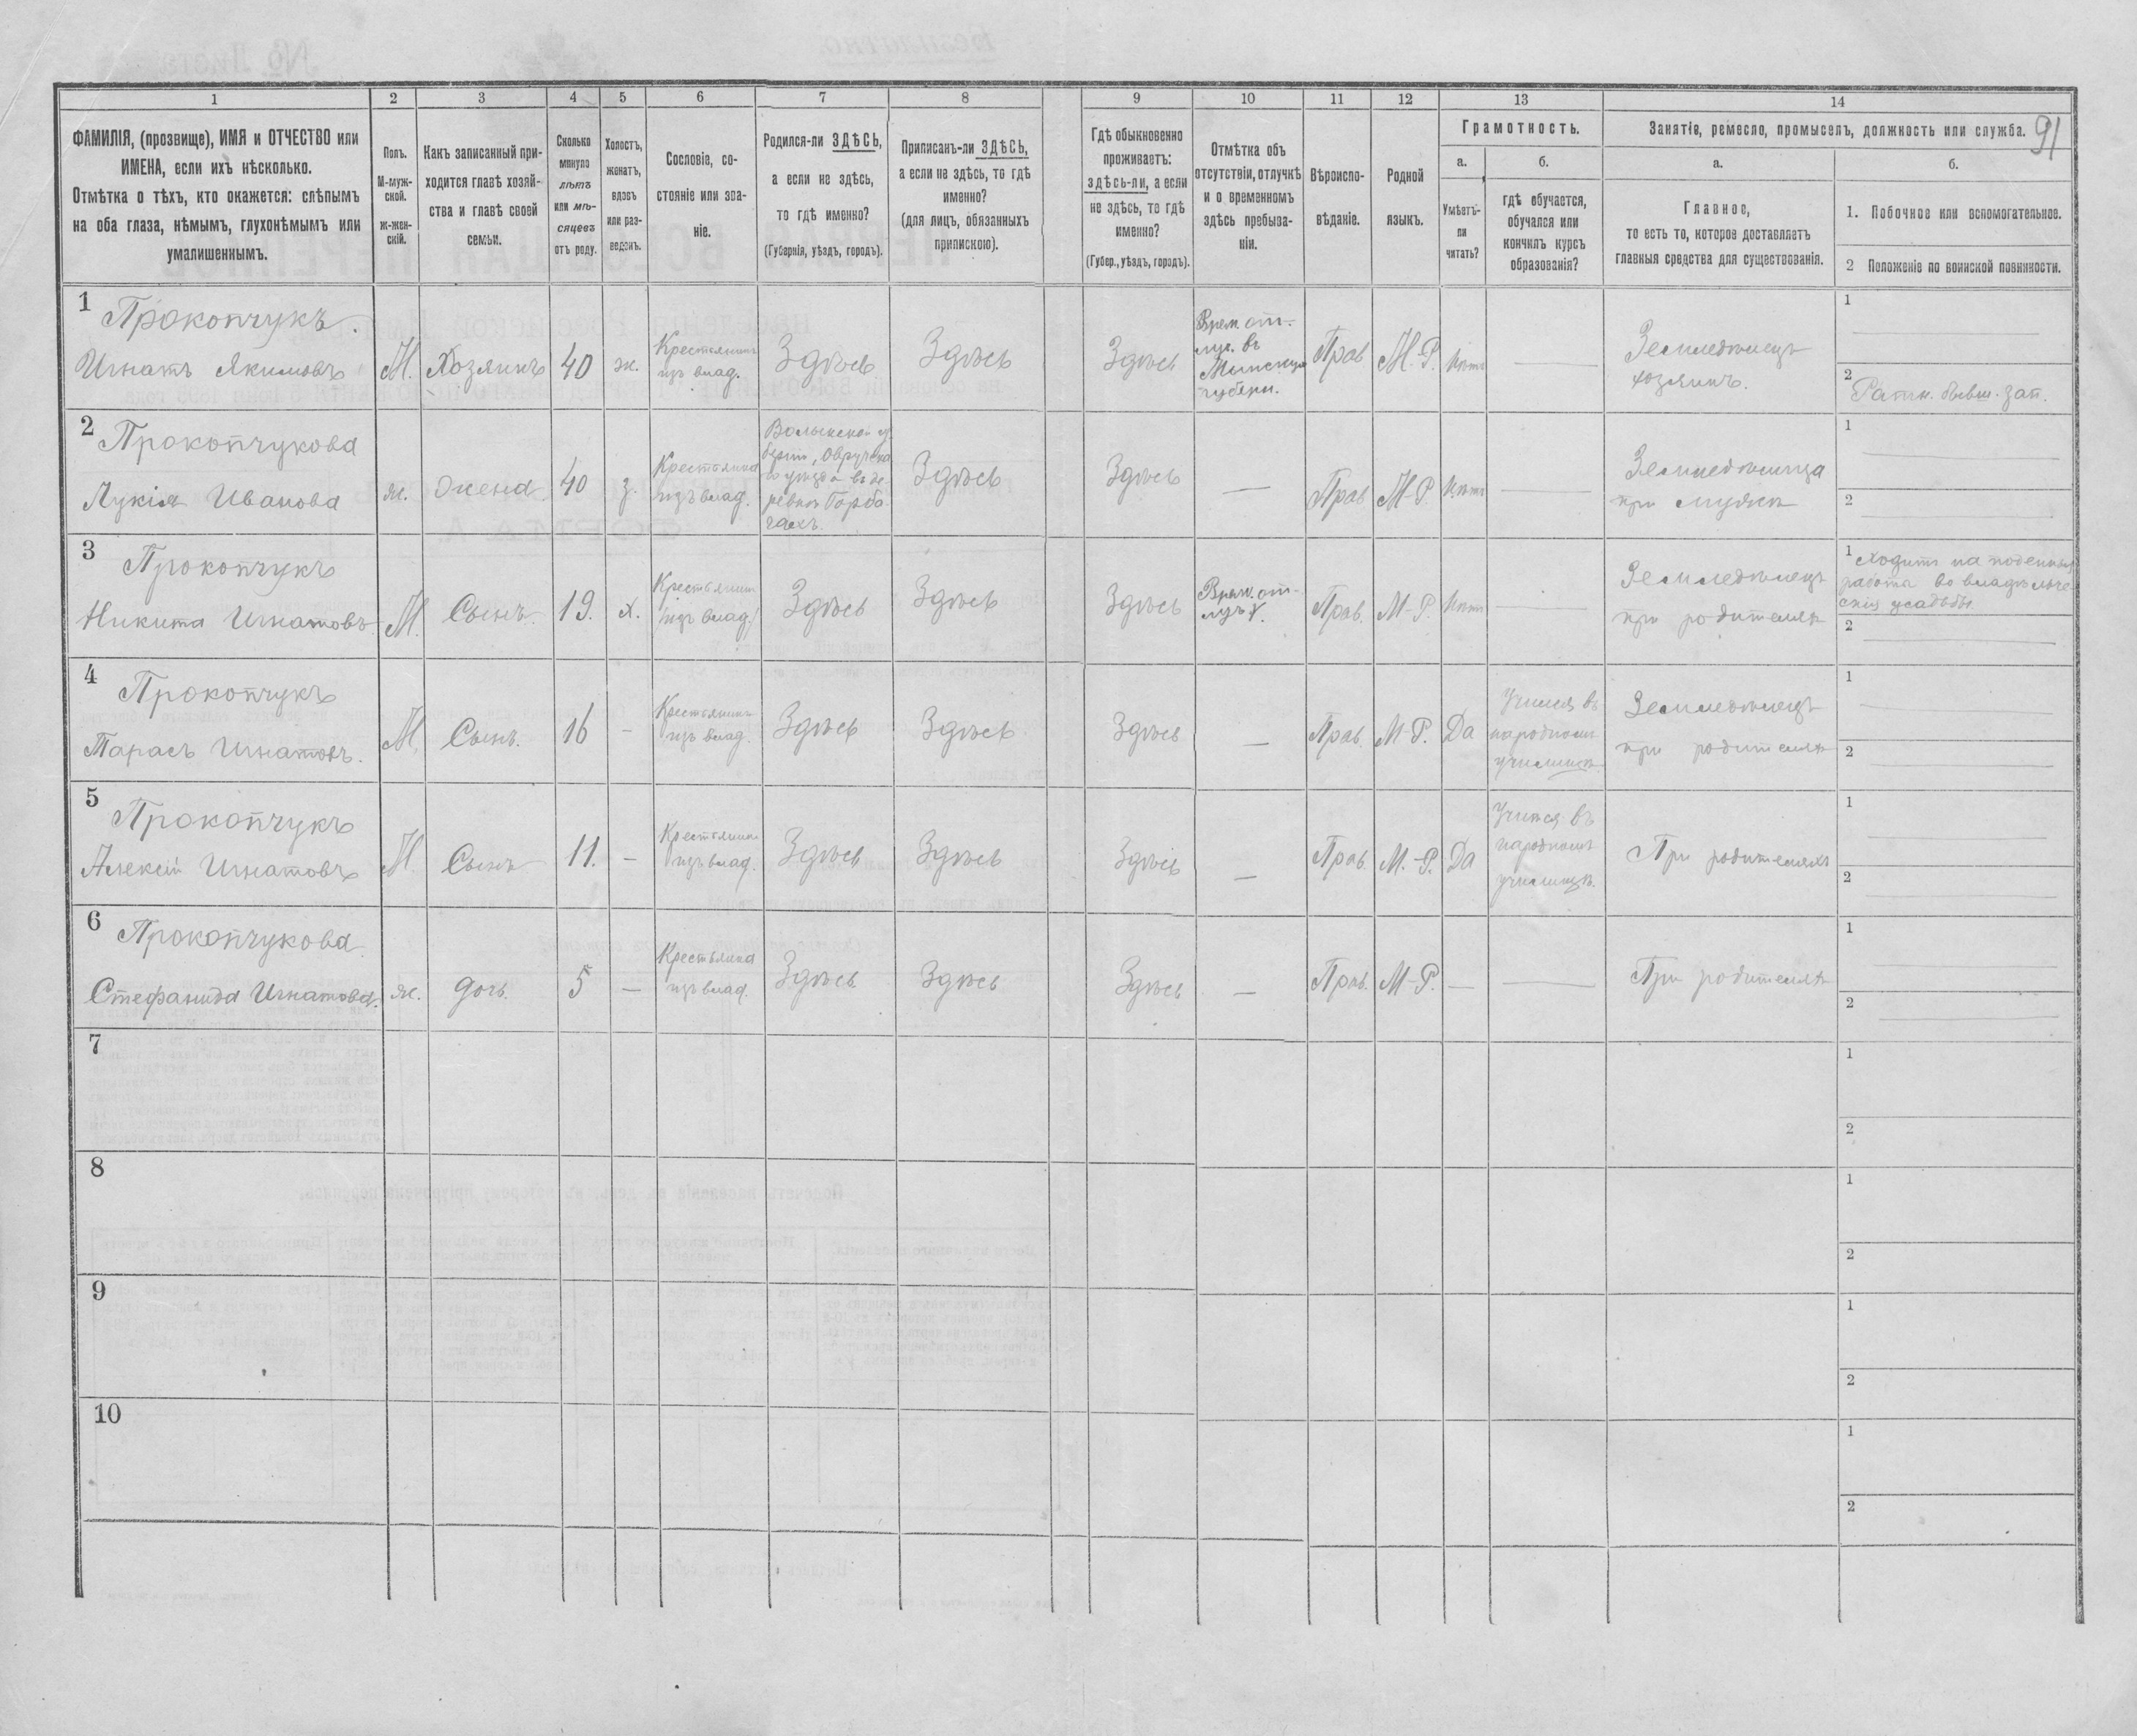 1 2 3 4 5 6 7 8 9 10 11 12 13 14
91
ФАМИЛІЯ, (прозвище), ИМЯ и ОТЧЕСТВО или
ИМЕНА, если ихъ нѣсколько.
Отмѣтка о тѣхъ, кто окажется: слѣпымъ
на оба глаза, нѣмымъ, глухонѣмымъ или
умалишеннымъ.
Полъ.
М-муж-
ской.
ж-жен-
скій.
Какъ записанный при-
ходится главѣ хозяй-
ства и главѣ своей
семьи.
Сколько
минуло
лѣтъ
или мѣ-
сяцевъ
отъ роду.
Холостъ,
женатъ,
вдовъ
или раз-
веденъ.
Сословіе, со-
стояніе или зва-
ніе.
Родился-ли ЗДѢСЬ,
а если не здѣсь,
то гдѣ именно?
(Губернія, уѣздъ, городъ).
Приписанъ-ли ЗДѢСЬ,
а если не здѣсь, то гдѣ
именно?
(для лицъ, обязанныхъ
припискою).
Гдѣ обыкновенно
проживаетъ:
здѣсь-ли, а если
не здѣсь, то гдѣ
именно?
(Губер., уѣздъ, городъ).
Отмѣтка объ
отсутствіи, отлучкѣ
и о временномъ
здѣсь пребыва-
ніи.
Вѣроиспо-
вѣданіе.
Родной
языкъ.
Грамотность.
а.
Умѣетъ-
ли
читать?
б.
гдѣ обучается,
обучался или
кончилъ курсъ
образованія?
Занятіе, ремесло, промыселъ, должность или служба.
а.
Главное,
то есть то, которое доставляетъ
главныя средства для существованія.
б.
1. Побочное или вспомогательное.
2 Положеніе по воинской повинности.
1
Прокопчукъ
Игнатъ Якимовъ
М.
Хозяинъ
40
ж.
Крестьянинъ
изъ влад.
Здѣсь
Здѣсь
Здѣсь
Врем. от-
луч. въ
губерн.
Прав
М.-Р.
Нѣтъ
Земледѣлецъ
хозяинъ.
1
2
Ратн. бывш. зап.
2
Прокопчукова
Лукія Иванова
ж.
Жена
40
з.
Крестьянка
изъ влад.
Волынской гу-
берн., Овручска-
го уѣзда въ де-
ревнѣ Горба-
чахъ.
Здѣсь
Здѣсь
—
Прав
М-Р
Нѣтъ
Земледѣлица
при мужѣ
1
2
3
Прокопчукъ
Никита Игнатовъ
М.
Сынъ.
19.
х.
Крестьянин
(изъ влад.)
Здѣсь
Здѣсь
Здѣсь
Врем. от-
Прав.
М-Р.
Нѣтъ
Земледѣлецъ
при родителяхъ
1 Ходитъ на поденныя
работы во владѣльче-
скія усадьбы
2
4
Прокопчукъ
Тарасъ Игнатовъ.
М.
Сынъ.
16
-
Крестьянинъ
изъ влад.
Здѣсь
Здѣсь
Здѣсь
—
Прав.
М-Р.
Да
Учился въ
народномъ
училищѣ
Земледѣлецъ
при родителяхъ
1
2
5
Прокопчукъ
Алексѣй Игнатовъ
М
Сынъ
11.
-
Крестьянинъ
изъ влад.
Здѣсь
Здѣсь
Здѣсь
—
Прав.
М.-Р.
Да
Учится въ
народномъ
училищѣ.
При родителяхъ
1
2
6
Прокопчукова
Стефанида Игнатова.
ж.
дочь.
5
—
Крестьянка
изъ влад.
Здѣсь
Здѣсь
Здѣсь
—
Прав.
М-Р.
—
При родителяхъ
1
2
7
1
2
8
1
2
9
1
2
10
1
2